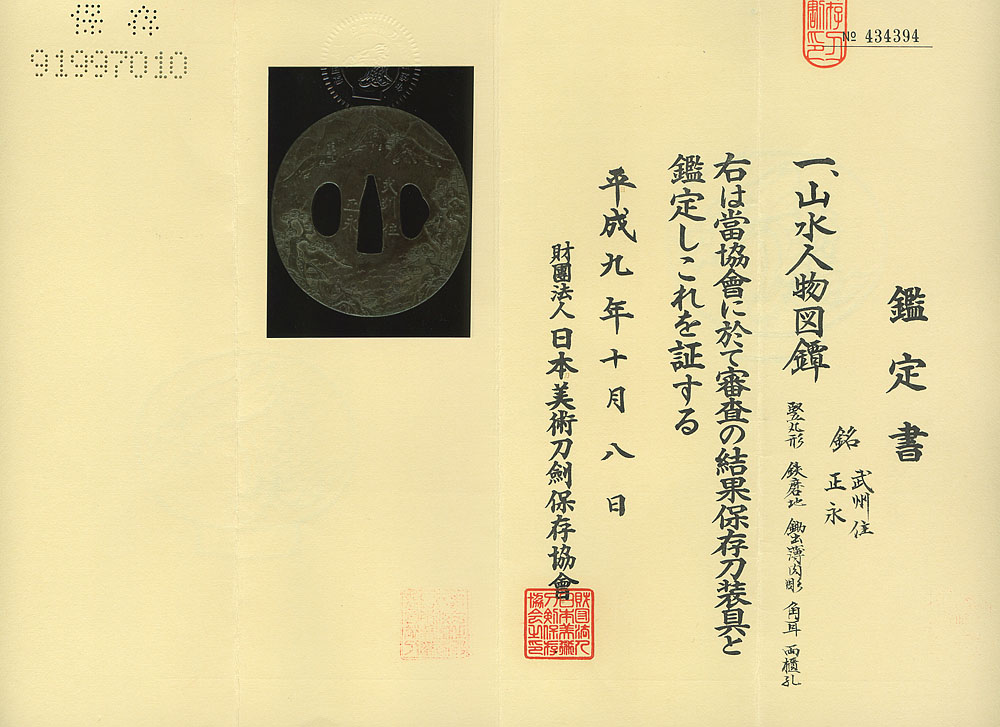 保存
91997010
№ 434394
鑑定書
一、山水人物図鐔
銘 武州住
正永
竪丸形 鉄磨地 鋤出薄肉彫 角耳 両櫃孔
右は當協會に於て審査の結果保存刀装具と
鑑定しこれを証する
平成九年十月八日
財團法人 日本美術刀劍保存協會
武州住
正永